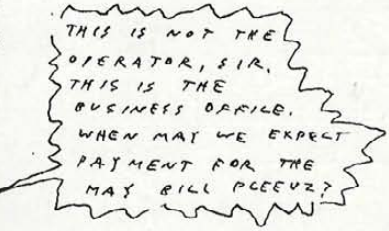 THIS IS NOT THE
OPERATOR, SIR.
THIS IS THE
BUSINESS OFFICE.
WHEN MAY WE EXPECT
PAYMENT FOR THE
MAY BILL PLEEUZ?